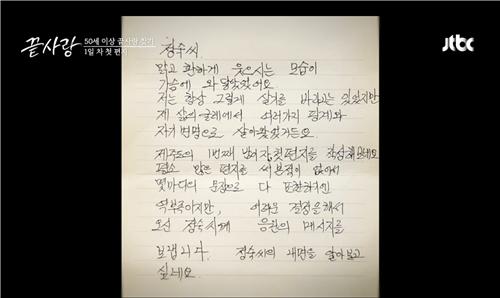 끝사랑
50세 이상 끝사랑 찾기
1일 차 첫 편지
jtbc
정숙씨
맑고 환하게 웃으시는 모습이
가슴에 와 닿았었어요
저는 항상 그렇게 살기를 바라고는 있었지만
제 삶의 굴레에서 여러가지 핑계와
자기변명으로 살아왔었거든요.
제주도의 1번째 밤 첫편지를 작성해 보네요
평소 많은 편지를 써본적이 없어서
몇마디의 문장으로 다 표현하기엔
역부족이지만, 어려운 결정을해서
오신 정숙씨께 응원의 메시지를
보냅니다. 정숙씨의 내면을 알아보고
싶네요.